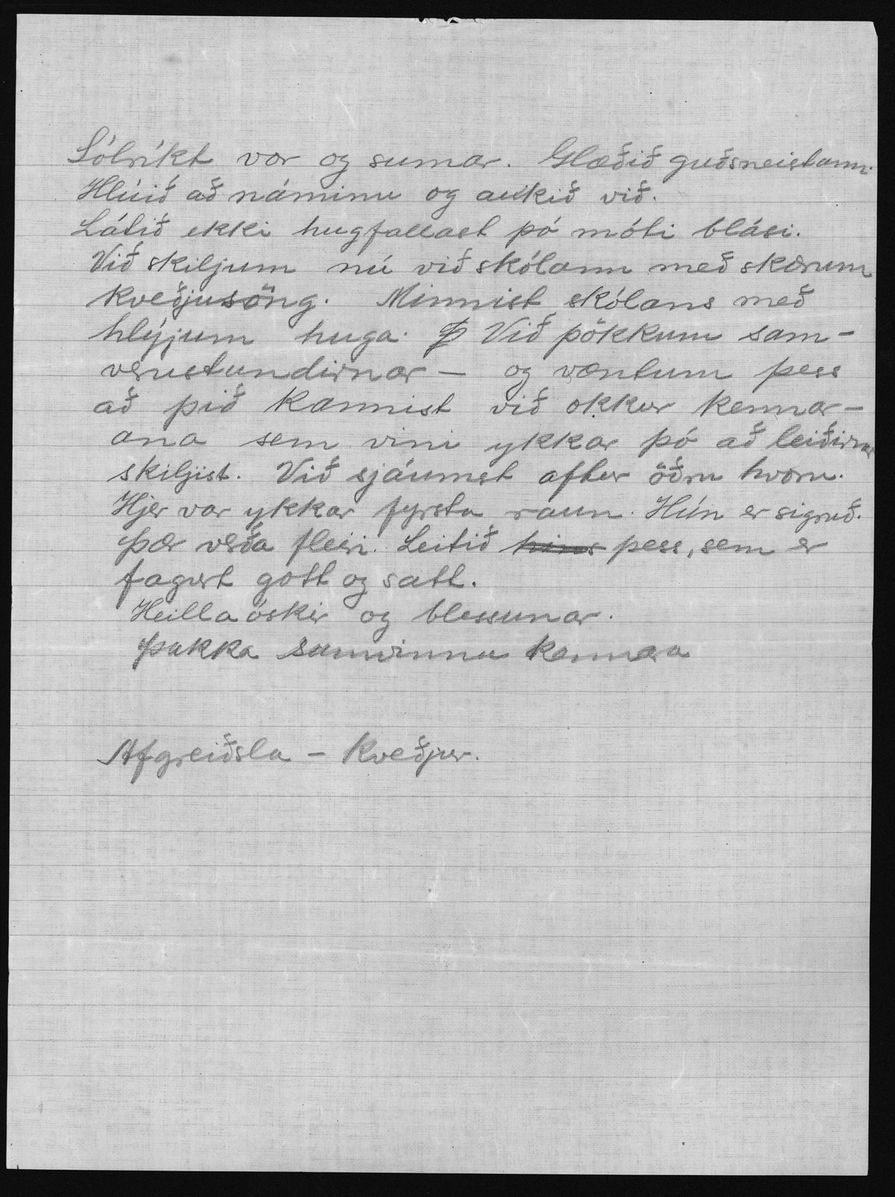 Sólríkt vor og sumar. Glæðið guðsneistann.
Hlúið að náminu og aukið við.
Látið ekki hugfallast þó móti blási.
Við skiljum nú við skólann með skærum
kveðjusöng. Minnist skólans með
hlýjum huga. Við þökkum sam-
verustundirnar - og væntum þess
að þið kannist við okkur kennar-
ana sem vini ykkar þó að leiðirnar
skiljist. Við sjáumst aftur öðru hvoru.
Hjer var ykkar fyrsta raun. Hún er sigruð.
Þær verða fleiri. Leitið hins þess, sem er
fagurt gott og satt.
Heillaóskir og blessunar.
Þakka samvinnu kennara
Afgreiðsla - kveðjur.